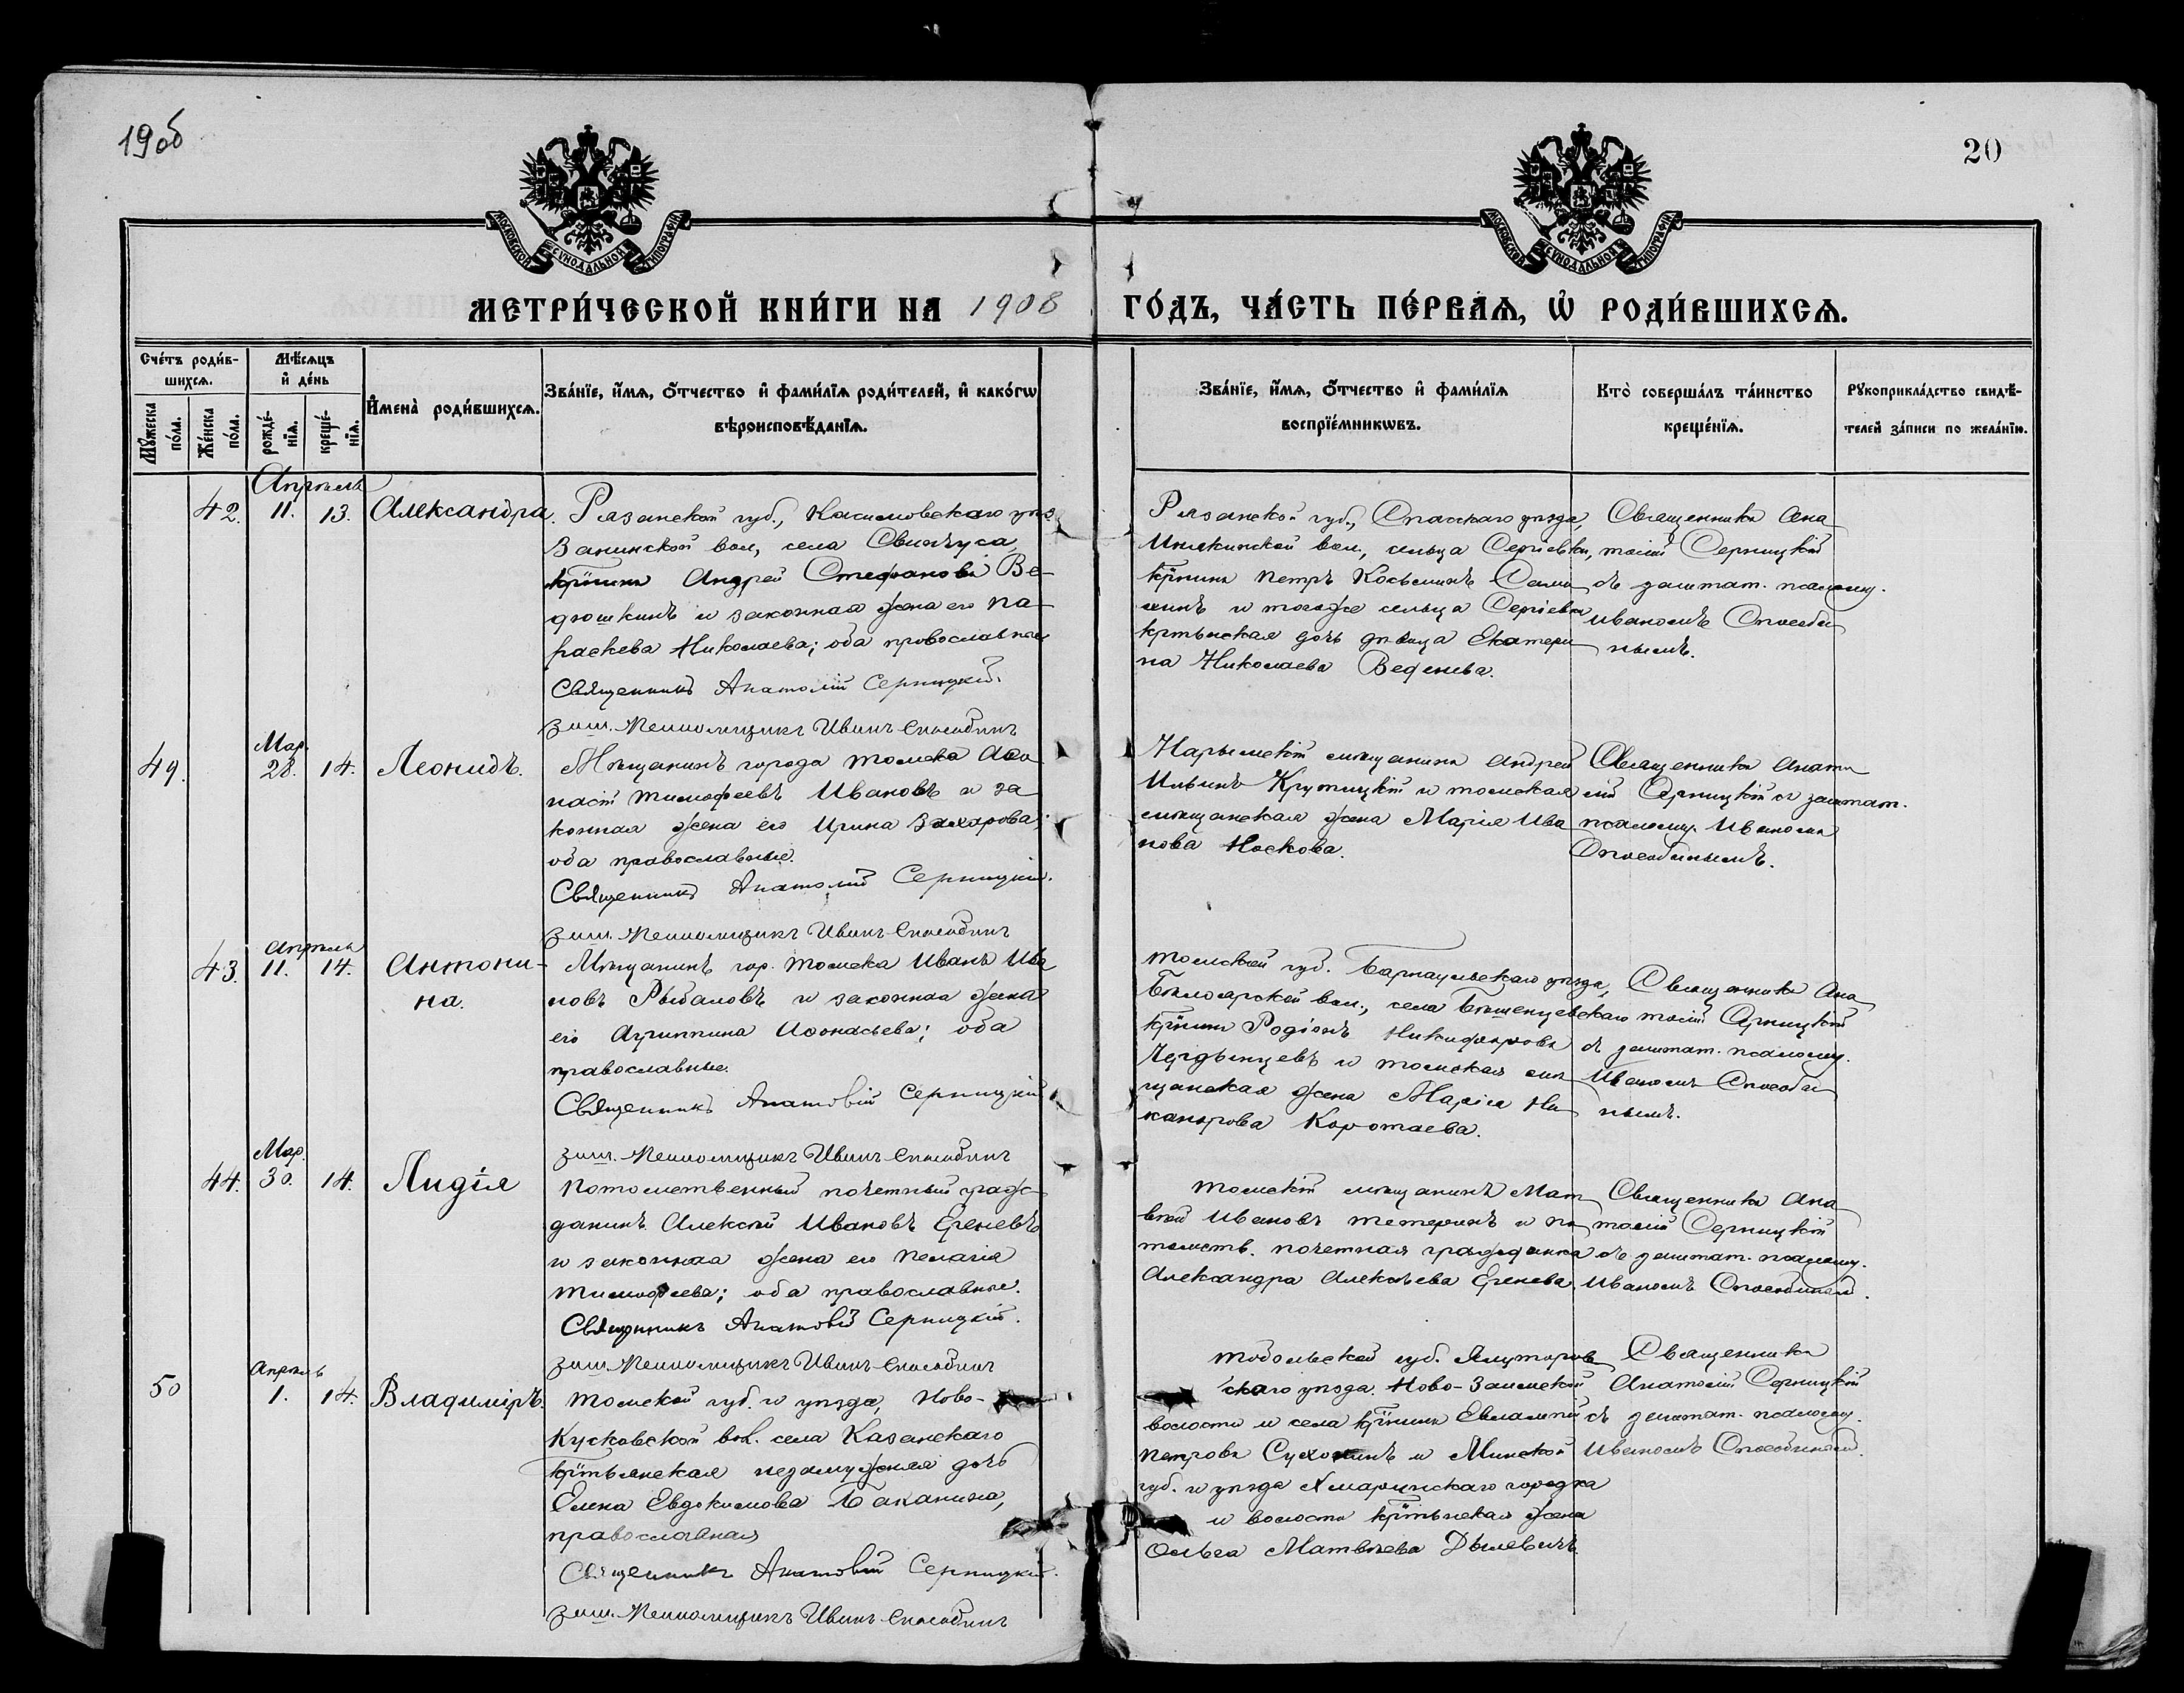 1908
20
МОСКОВСКОЙ СѴНОДАЛЬНОЙ ТИПОГРАФІИ
МОСКОВСКОЙ СѴНОДАЛЬНОЙ ТИПОГРАФІИ
МЕТРИ́ЧЕСКОЙ КНИ́ГИ НА 1908 ГО́ДЪ, ЧА́СТЬ ПЕ́РВАѦ, Ѡ҆ РОДИ́ВШИХСѦ.
Сче́тъ роди́в-
шихсѧ.
Мꙋ́жеска по́ла.
Же́нска по́ла.
Мѣ́сѧцъ
и҆ де́нь
рожде́-
нїѧ.
креще́-
нїѧ.
И҆мена̀ роди́вшихсѧ.
Зва́нїе, и҆́мѧ, ѻ҆́тчество и҆ фами́лїѧ роди́телей, и҆ како́гѡ
вѣроисповѣ́данїѧ.
Зва́нїе, и҆́мѧ, ѻ҆́тчество и҆ фами́лїѧ
воспрїе́мникѡвъ.
Кто̀ соверша́лъ та́инство
креще́нїѧ.
Рꙋкоприкла́дство свидѣ́-
телей за́писи по жела́нїю.
Апрѣль
42. 11. 13. Александра.
Рязанской губ., Касимовскаго уѣз.
Занинской вол., села Свинчуса,
кр҃нинъ Андрей Стефановъ Ве-
дюшкинъ и законная жена его Па-
раскева Николаева; оба православные
Священникъ Анатолій Серницкій.
заш. Псаломщикъ Иванъ Способинъ
Рязанской губ., Спасскаго уѣзда,
Инякинской вол., сельца Сергіевки,
кр҃нинъ Петръ Косьминъ
и тогоже сельца Сергіевки
кртьнская дочь дѣвица Екатери
на Николаева Веденева.
Священникъ Ана
толій Серницкій
съ заштат. псаломщ.
Иваномъ Способи
нымъ.
Мар.
49. 28. 14. Леонидъ.
Мѣщанинъ города Томска Аѳа
насій Тимофеевъ Ивановъ и за
конная жена его Ирина Захарова;
оба православные.
Священникъ Анатолій Серницкій.
заш. Псаломщикъ Иванъ Способинъ
Нарымскій мѣщанинъ Андрей
Ильинъ Крутицкій и томская
мѣщанская жена Марія Ива
нова Носкова.
Священникъ Анато
лій Серницкій съ заштат.
псаломщ. Иваномъ
Способинымъ.
Апрѣль
43. 11. 14. Антони-
на.
Мѣщанинъ гор. Томска Иванъ Ива
новъ Рыбаловъ и законная жена
его Агриппина Аѳонасьева; оба
православные.
Священникъ Анатолій Серницкій
заш. Псаломщикъ Иванъ Способинъ
Томской губ. Барнаульскаго уѣзда,
Бѣлоярской вол., села
кр҃нинъ Родіонъ Никифоровъ
и томская мѣ
щанская жена Марія Ни
канорова Коротаева.
Священникъ Ана
толій Серницкій
съ заштат. псаломщ.
Иваномъ Способи
нымъ.
Мар.
44. 30. 14. Лидія
Потомственный почетный граж-
данинъ Алексѣй Ивановъ Ереневъ
и законная жена его Пелагія
Тимофеева; оба православные.
Священникъ Анатолій Серницкій.
заш. Псаломщикъ Иванъ Способинъ
Томскій мѣщанинъ Мат
вѣй Ивановъ Тетеринъ и по
томств. почетная гражданка
Александра Алексѣева Еренева.
Священникъ Ана
толій Серницкій
съ заштат. псаломщ.
Иваномъ Способинымъ.
Апрѣль
50 1. 14. Владиміръ.
Томской губ. и уѣзда, Ново-
Кусковской вол. села Казанскаго
кр҃тьянская незамужняя дочь
Елена Евдокимова Баканина,
православная
Священникъ Анатолій Серницкій.
заш. Псаломщикъ Иванъ Способинъ
Тобольской губ. Ялуторов
скаго уѣзда Ново-Заимской
волости и села кр҃нинъ Евлампій
Петровъ и Минской
губ. и уѣзда городка
и волости кр҃тьнская жена
Ольга Матвѣева Дылевичъ.
Священникъ
Анатолій Серницкій
съ заштат. псаломщ.
Иваномъ Способинымъ.